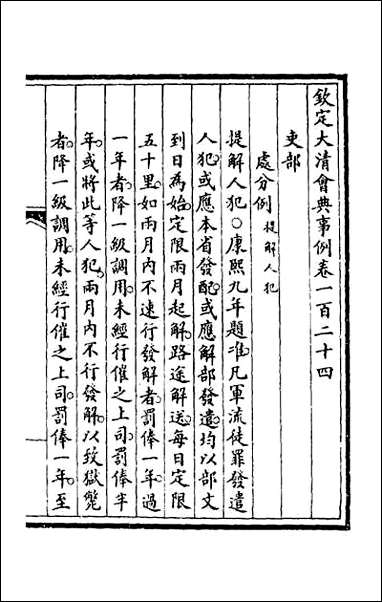 欽定大清會典事例卷一百二十四
吏部
處分例 提解人犯
提解人犯○康熙九年題准凡軍流徒罪發遣
人犯或應本省發配或應解部發遣均以部文
到日為始定限兩月起解路途解送每日定限
五十里如兩月內不速行發解者罰俸一年過
一年者降一級調用未經行催之上司罰俸半
年或將此等人犯兩月內不行發解以致獄斃
者降一級調用未經行催之上司罰俸一年至